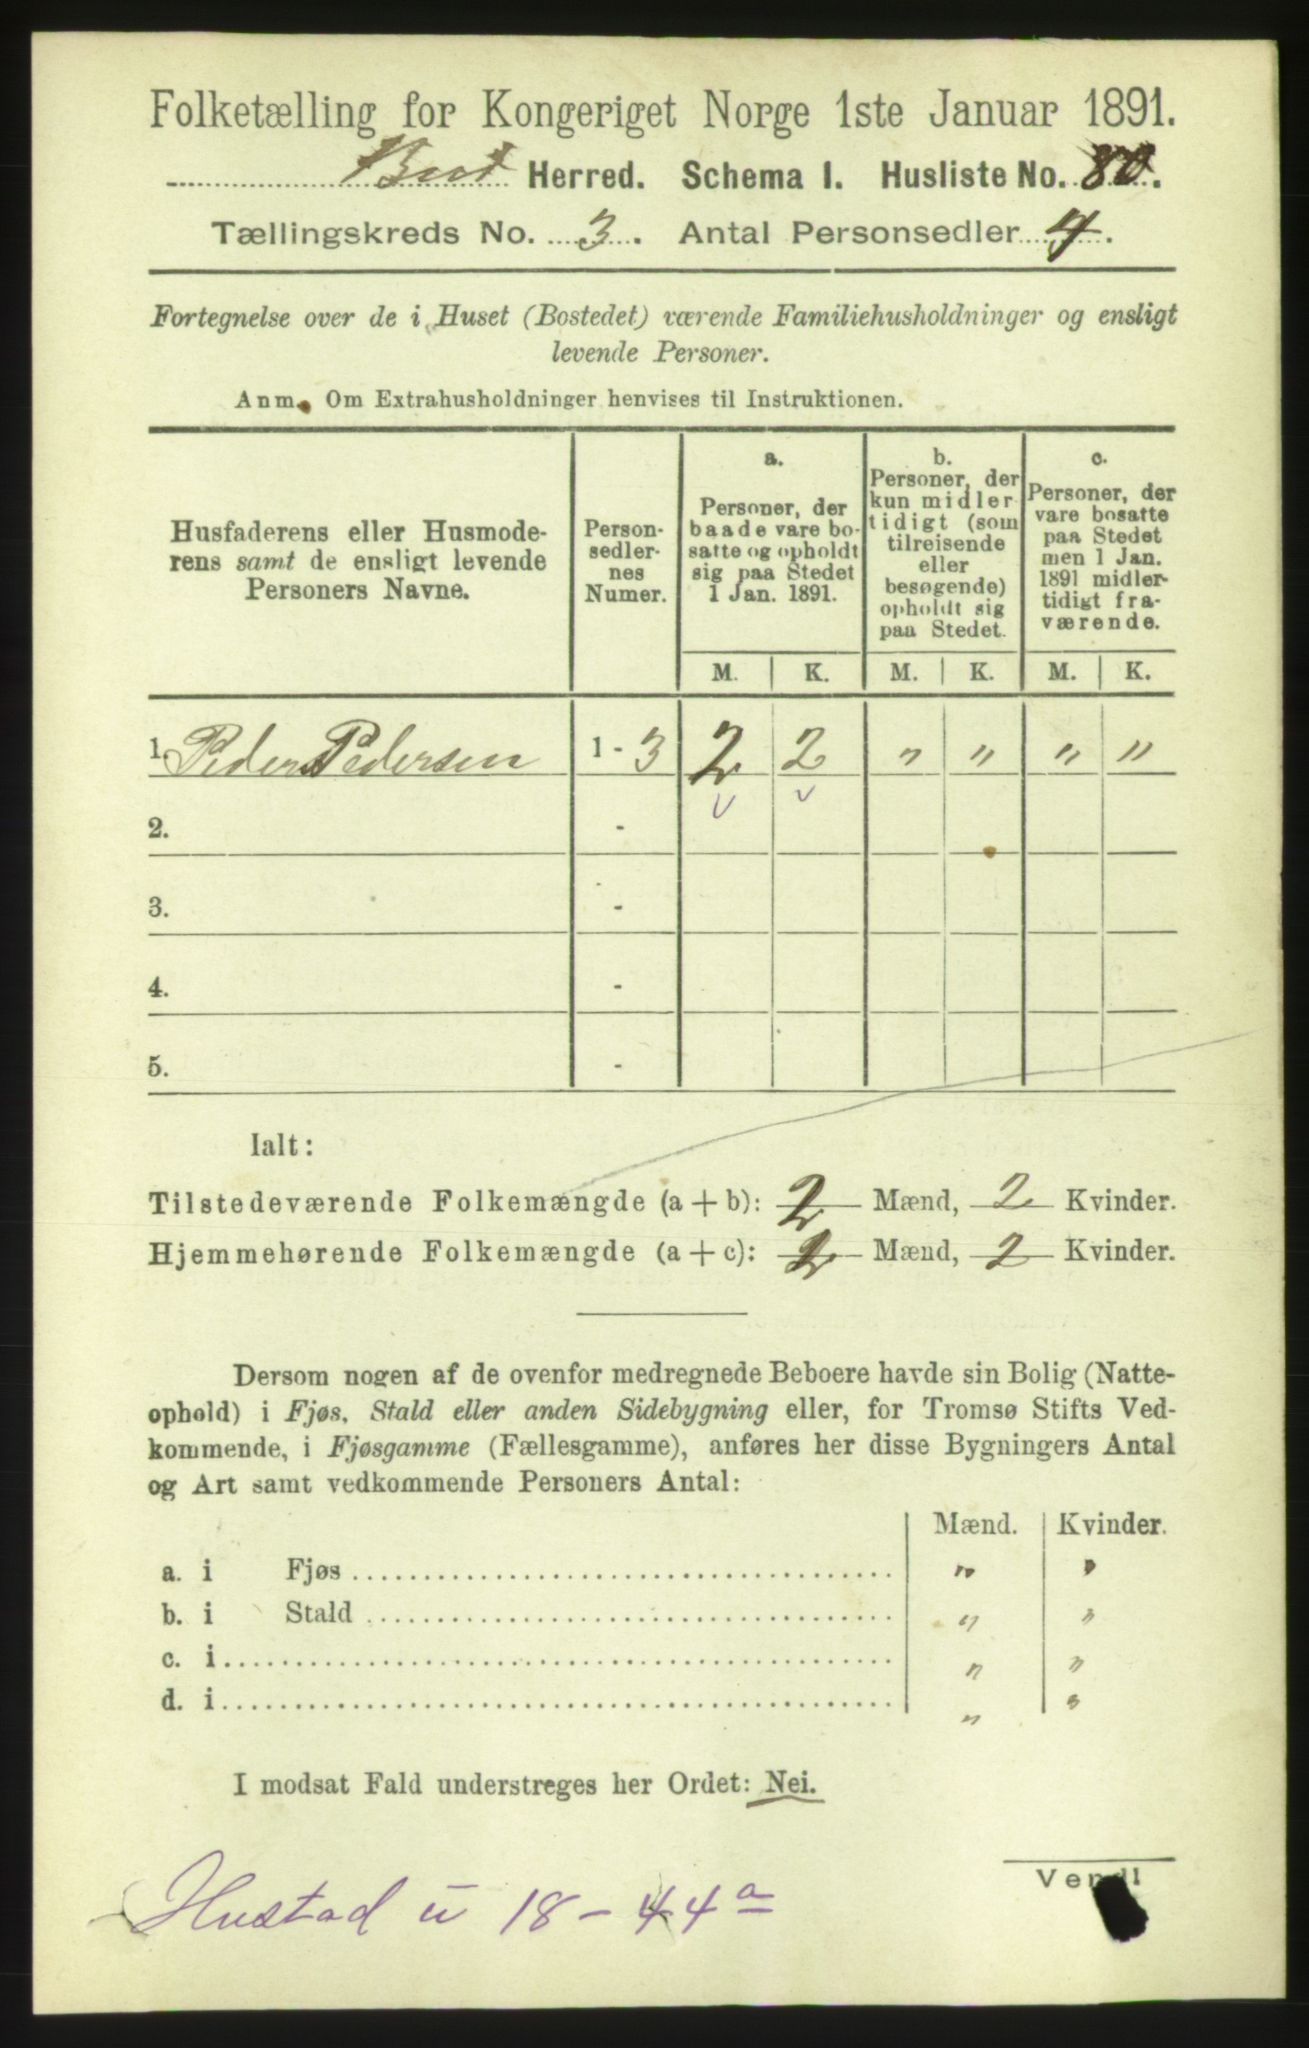 Folketælling for Kongeriget Norge 1ste Januar 1891.
Bud Herred. Schema I. Husliste No. 80.
Tællingskreds No. 3. Antal Personsedler 4.
Fortegnelse over de i Huset (Bostedet) værende Familiehusholdninger og ensligt
levende Personer.
Anm. Om Extrahusholdninger henvises til Instruktionen.
Husfaderens eller Husmode-
rens samt de ensligt levende
Personers Navne.
Person-
sedler-
nes
Numer.
a.
Personer, der
baade vare bo-
satte og opholdt
sig paa Stedet
1 Jan. 1891.
b.
Personer, der
kun midler-
tidigt (som
tilreisende
eller
besøgende)
opholdt sig
paa Stedet.
c.
Personer, der
vare bosatte
paa Stedet
men 1 Jan.
1891 midler-
tidigt fra-
værende.
M. K. M. K. M. K.
1. Peder Pedersen 1 - 3 2 2 " " " "
2. -
3. -
4. -
5. -
Ialt:
Tilstedeværende Folkemængde (a + b): 2 Mænd, 2 Kvinder.
Hjemmehørende Folkemængde (a + c): 2 Mænd, 2 Kvinder.
Dersom nogen af de ovenfor medregnede Beboere havde sin Bolig (Natte-
ophold) i Fjøs, Stald eller anden Sidebygning eller, for Tromsø Stifts Ved-
kommende, i Fjøsgamme (Fællesgamme), anføres her disse Bygningers Antal
og Art samt vedkommende Personers Antal:
Mænd. Kvinder.
a. i Fjøs " "
b. i Stald " "
c. i " "
d. i " "
I modsat Fald understreges her Ordet: Nei.
Vend!
Hustad u 18 - 44 a